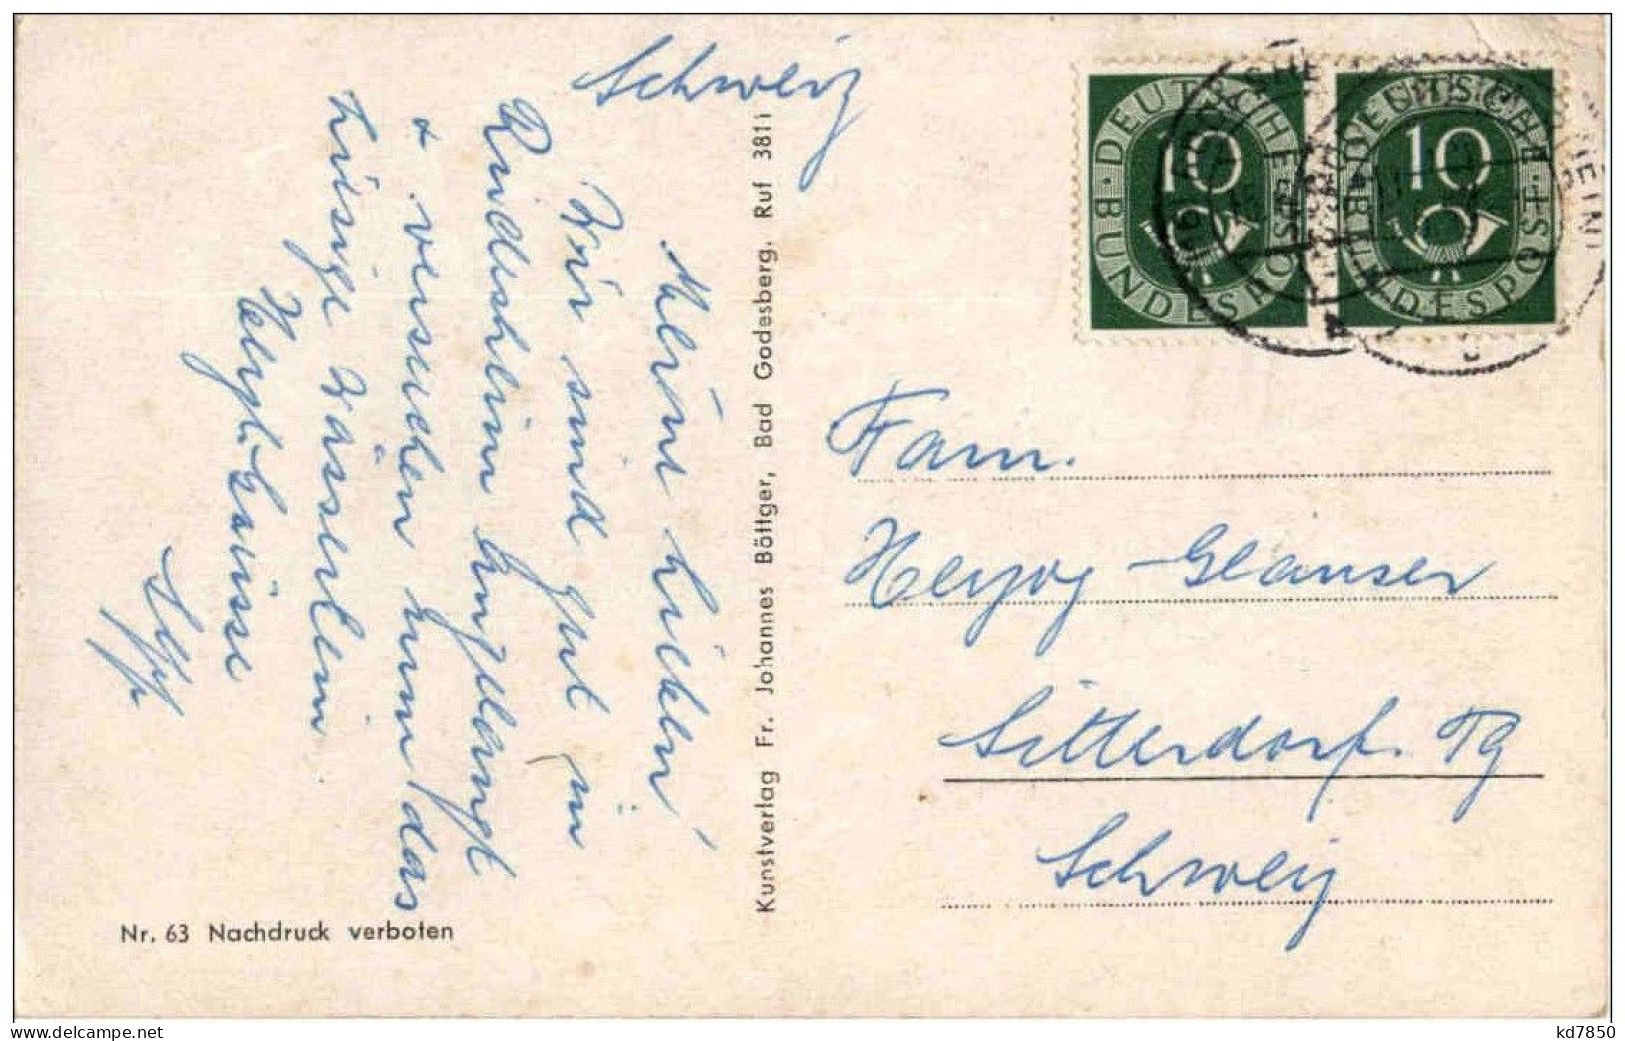 Schweiz
Meine Lieben!
Wir sind gut in
Rüdesheim angelangt
& versuchen nun das
küsige Wässerlein.
Herzl. Grüsse
Kunstverlag Fr. Johannes Böttger, Bad Godesberg. Ruf 3811
DEUTSCHE BUNDESPOST
10
DEUTSCHE BUNDESPOST
10
Fam.
Herzog-Glauser
Sitterdorf. Tg
Schweiz
Nr. 63 Nachdruck verboten
kd7850
delcampe.net